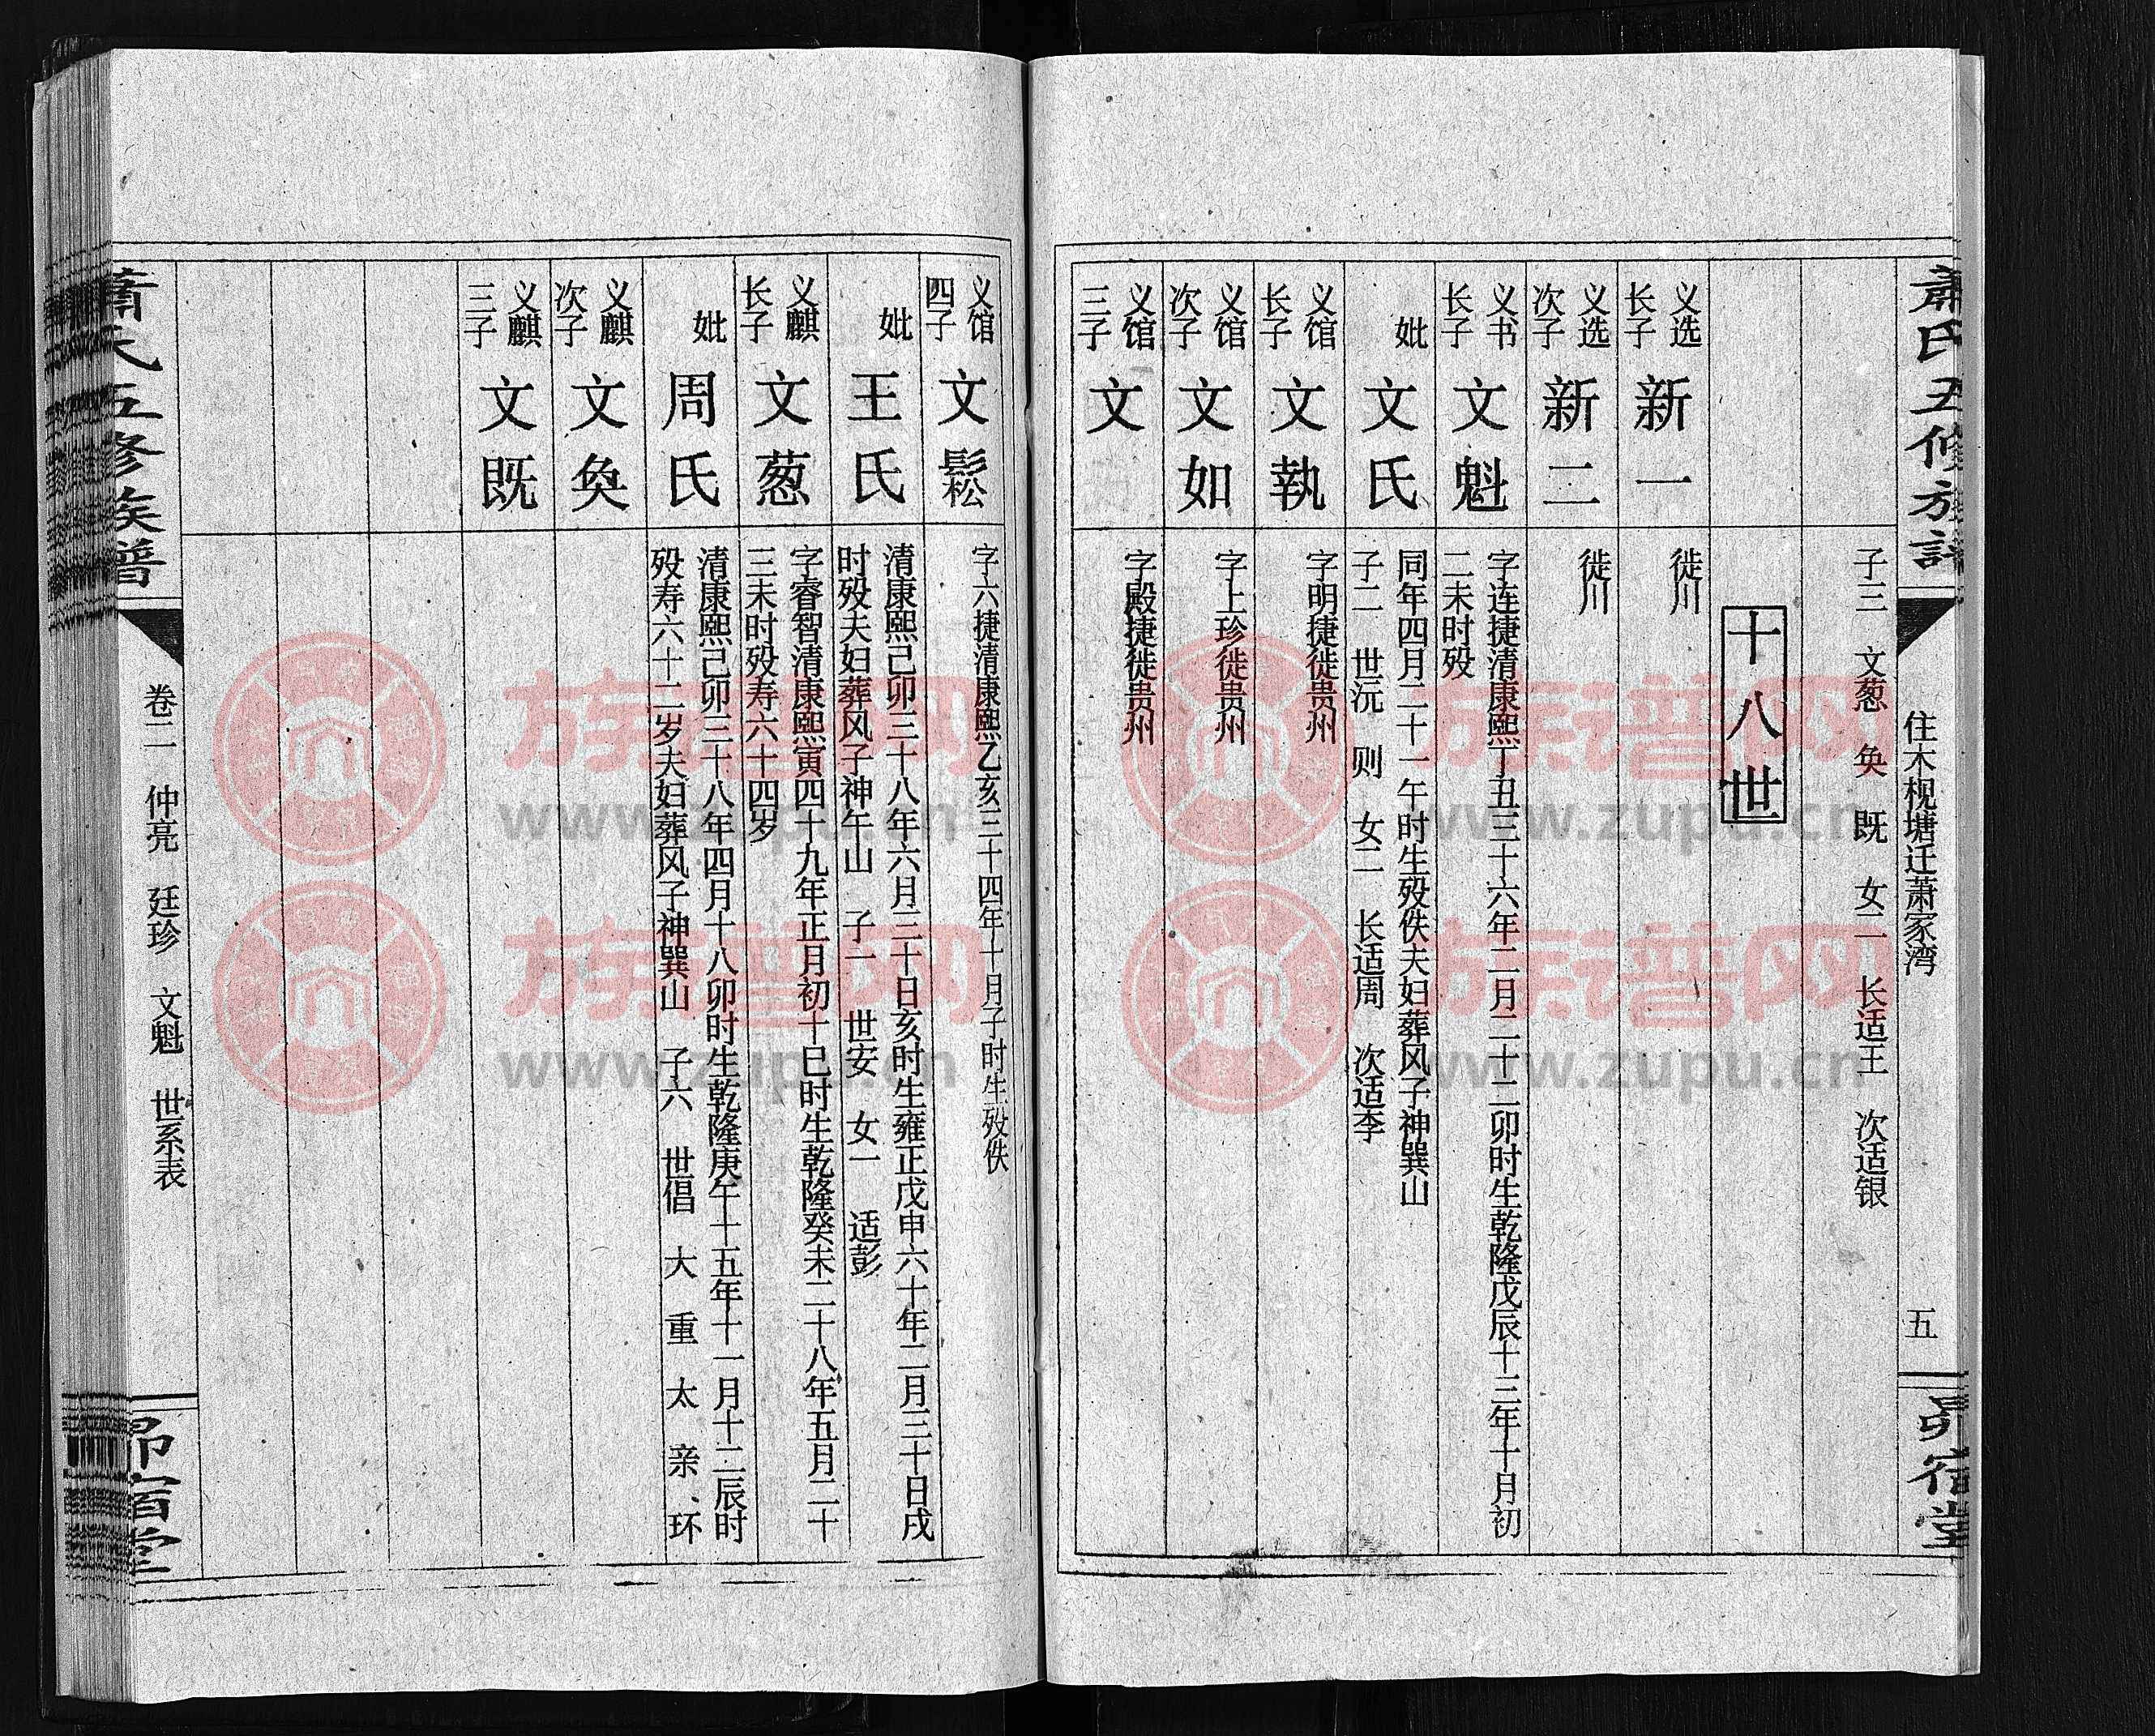 萧氏五修族譜
住木梘塘迁萧家湾
五
昴宿堂
子三 文葱 奂 既 女二 长适王 次适银
十八世
义选长子
新一
徙川
义选次子
新二
徙川
义书长子
文魁
字连捷清康熙丁丑三十六年二月二十二卯时生乾隆戊辰十三年十月初
二未时殁
妣
文氏
同年四月二十一午时生殁佚夫妇葬风子神巽山
子二 世沅 则 女二 长适周 次适李
义馆长子
文執
字明捷徙贵州
义馆次子
文如
字上珍徙贵州
义馆三子
文
字殿捷徙贵州
义馆四子
文鬆
字六捷清康熙乙亥三十四年十月子时生殁佚
妣
王氏
清康熙己卯三十八年六月二十日亥时生雍正戊申六十年二月三十日戌
时殁夫妇葬风子神午山 子一 世安 女一 适彭
义麒长子
文葱
字睿智清康熙寅四十九年正月初十巳时生乾隆癸未二十八年五月二十
三未时殁寿六十四岁
妣
周氏
清康熙己卯三十八年四月十八卯时生乾隆庚午十五年十一月十二辰时
殁寿六十二岁夫妇葬风子神巽山 子六 世倡 大 重 太 亲 环
义麒次子
文奂
义麒三子
文既
萧氏五修族谱
卷二 仲亮 廷珍 文魁 世系表
昴宿堂
族谱网
www.zupu.cn
族谱网
www.zupu.cn
族谱网
www.zupu.cn
族谱网
www.zupu.cn